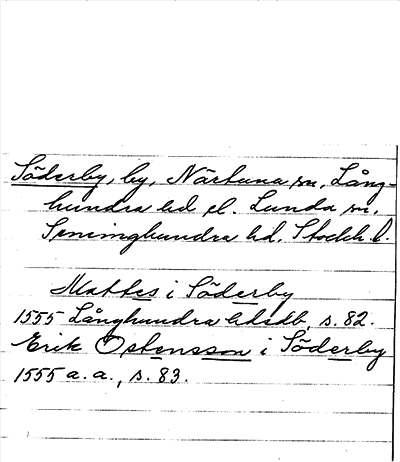 Söderby, by, Närtuna sn, Lång-
hundra hd el. Lunda sn,
Seminghundra hd, Stockh. l.
Mattes i Söderby
1555 Långhundra hdsdb, s. 82.
Erik Östensson i Söderby
1555 a. a., s. 83.